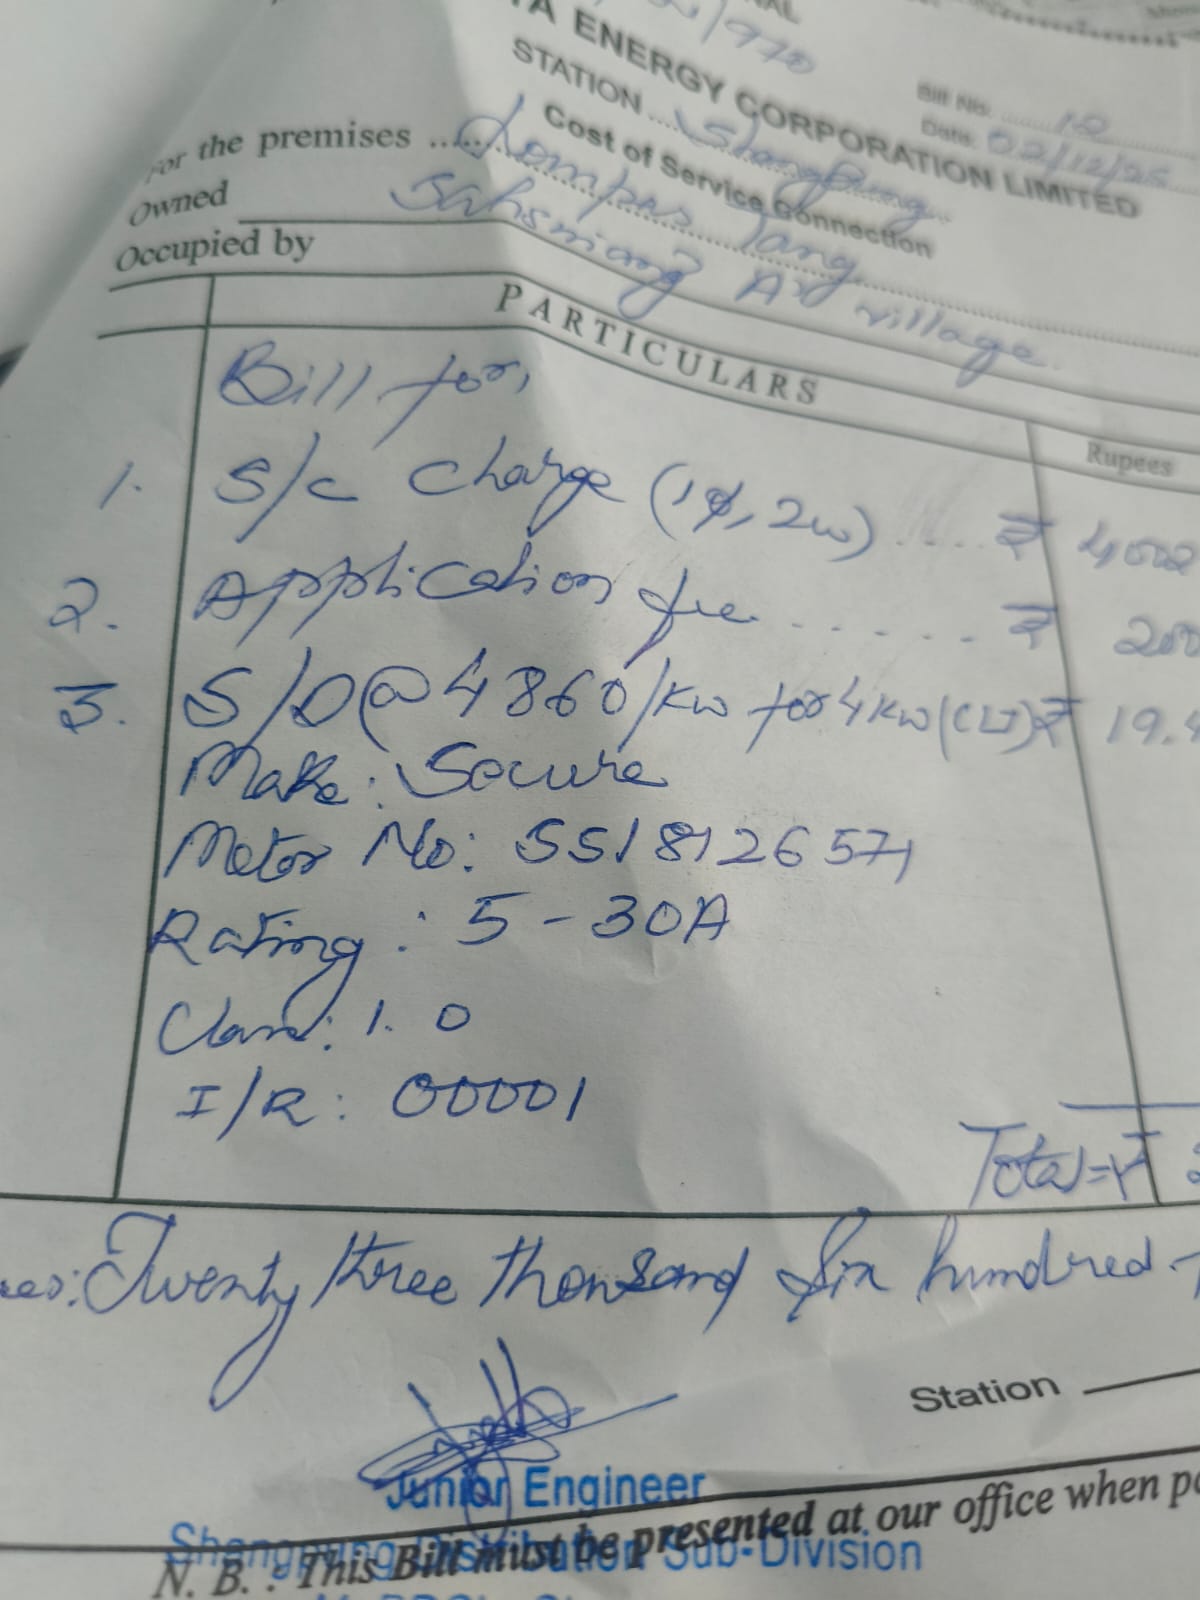 ENERGY CORPORATION LIMITED
Bill No. 12
Date 02/12/25
STATION Shangpung
Cost of Service Connection
For the premises Lompas Tang
Owned
Occupied by Sahsniang village
PARTICULARS
Rupees
Bill for,
1. S/c charge (1φ, 2w) .... ₹ 4002
2. Application fee ...... ₹ 200
3. S/D @ 4860/kw for 4kw (CL) ₹ 19.4
Make: Secure
Meter No: SS18126571
Rating: 5-30A
Class: 1.0
I/R: 00001
Total = ₹
Twenty three thousand six hundred
Station
Junior Engineer
Shangpung Distribution Sub-Division
N. B. : This Bill must be presented at our office when